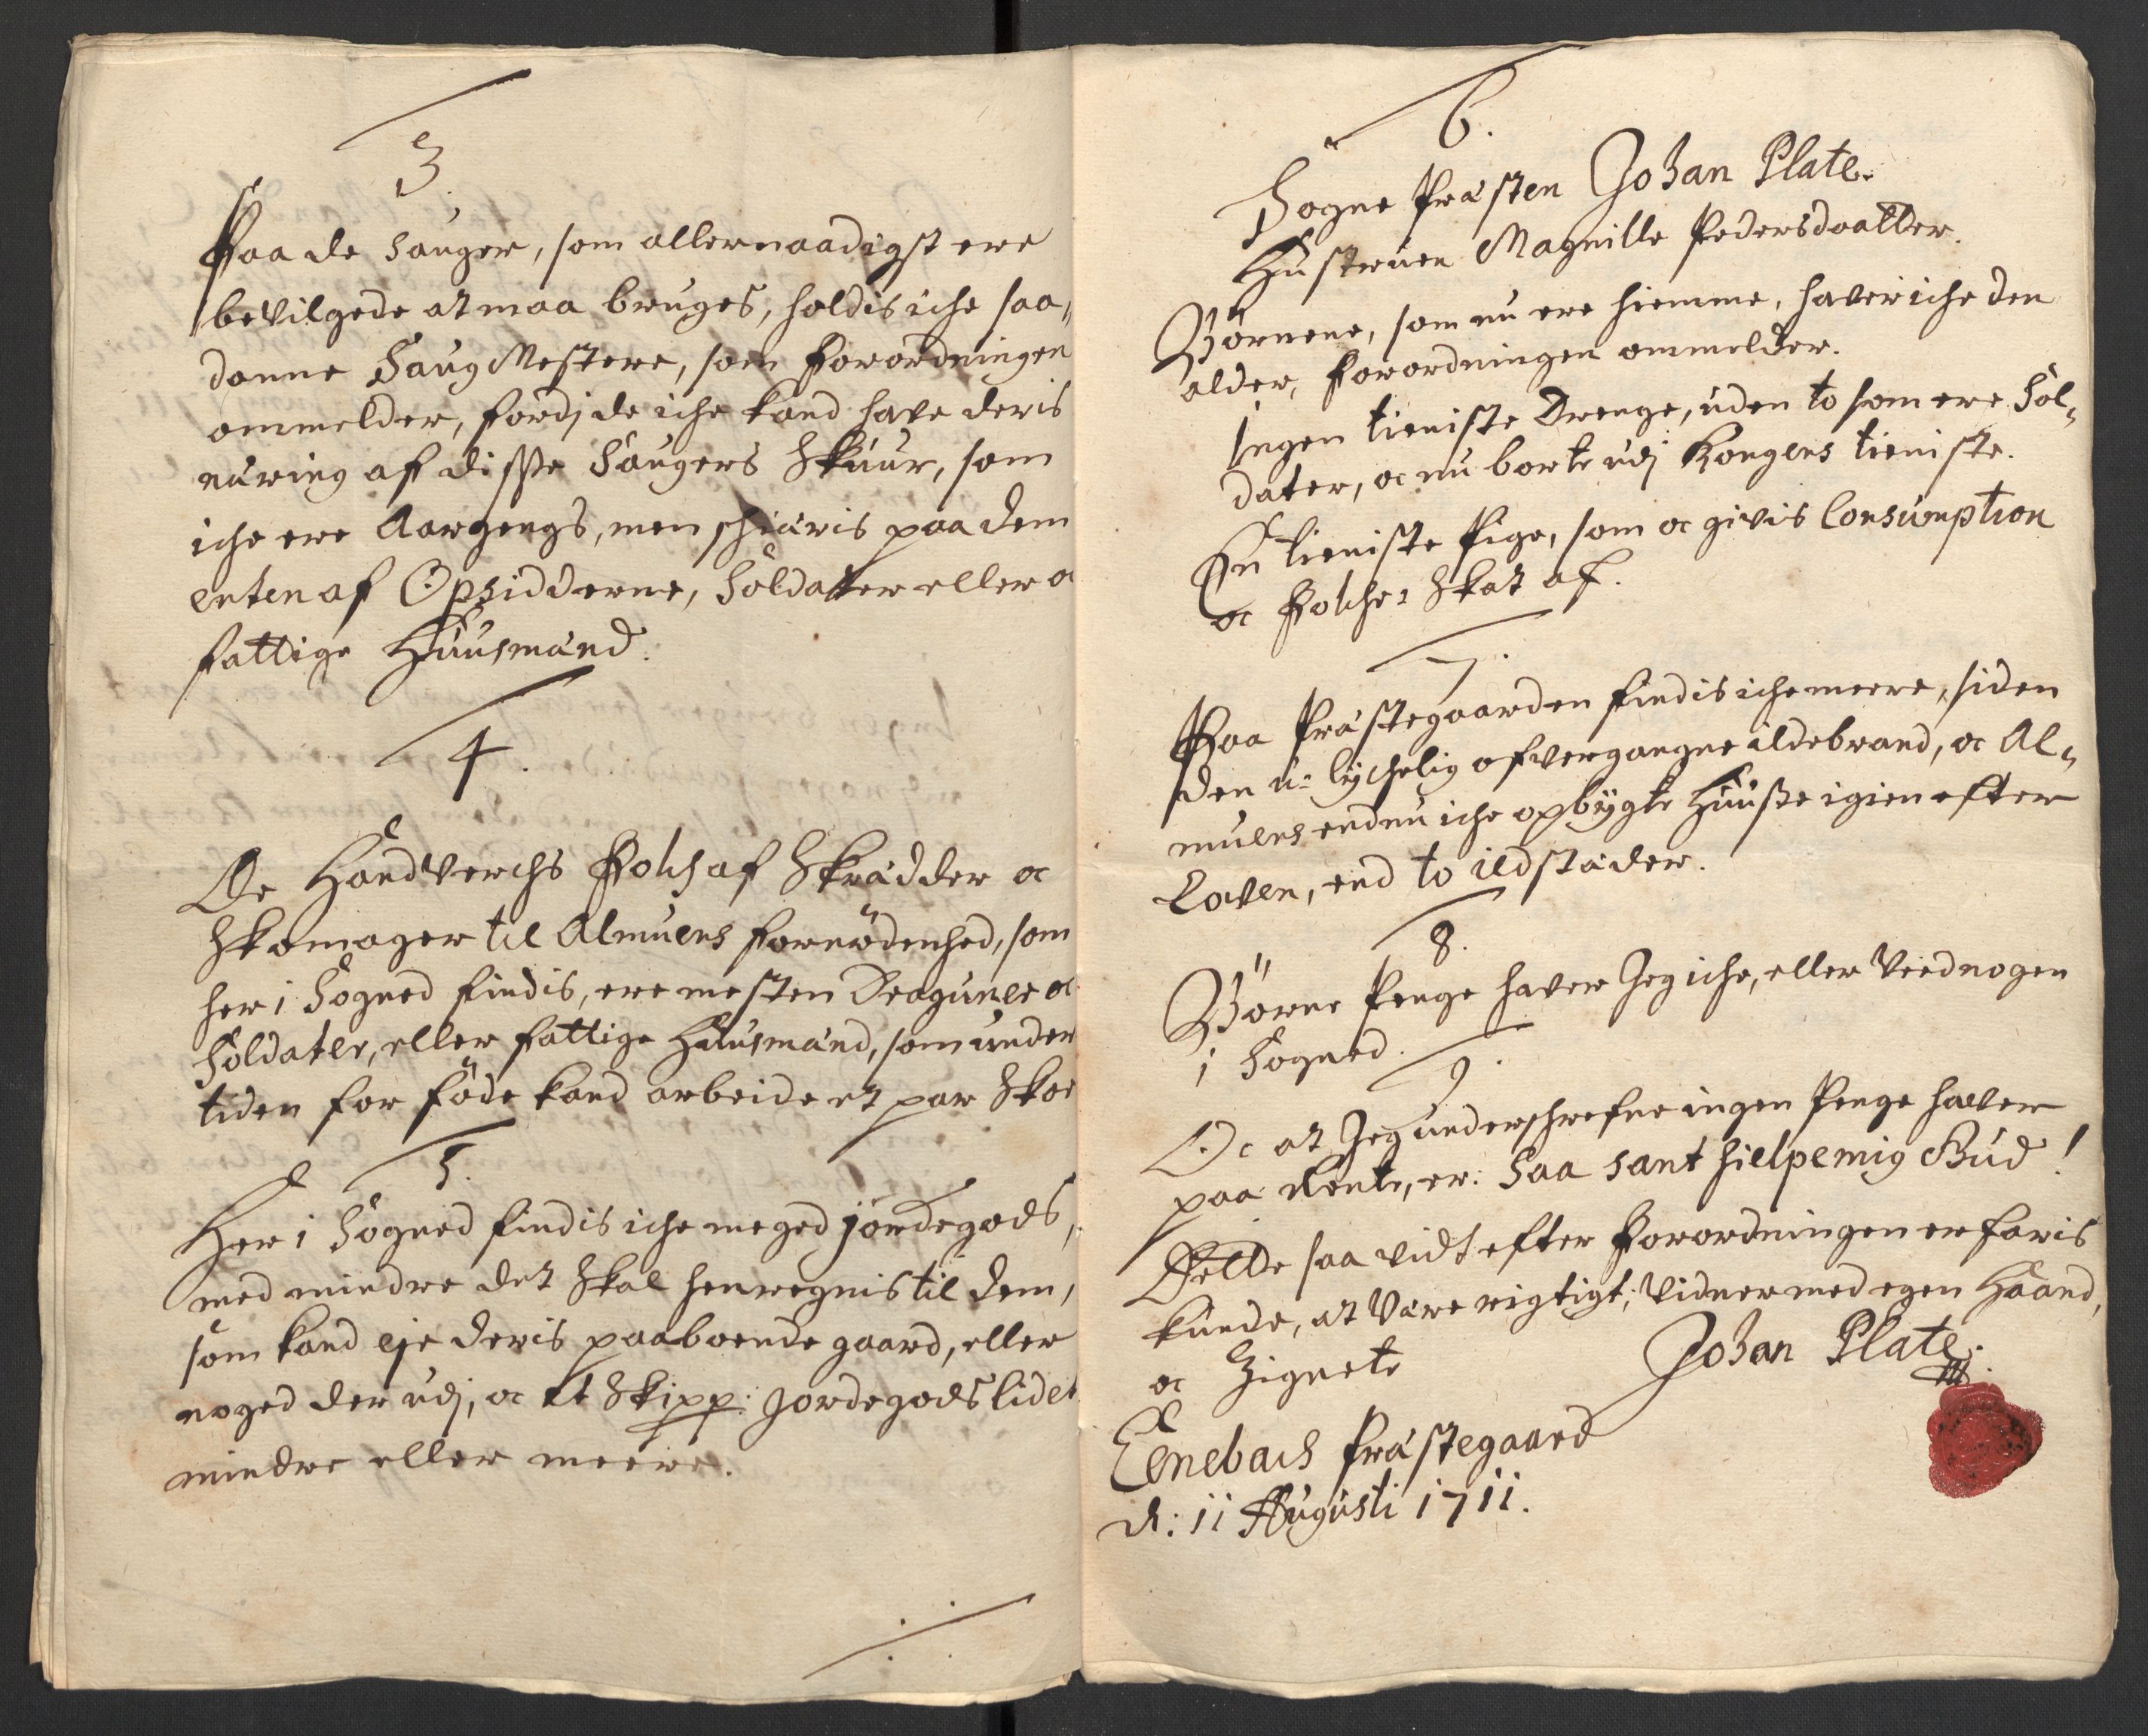 3
Paa de Sauger, som allernaadigst ere
bevilgede at maa bruges, holdis iche saa„
danne Saug Mestere, som Forordningen
ommelder, fordj de iche kand have deris
næring af disse Saugers Skuur, som
iche ere Aargengs, men schiæris paa dem
enten af Opsidderne, Soldatter eller oc
fattige Huusmænd.
4.
De Handverchs Folch af Skrædder oc
Skomager til Almuens fornødenhed, som
her i Sogned findis, ere mesten Draguner oc
Soldater, eller fattige Huusmænd, som under
tiden for føde kand arbeide et par Skoe
5.
Her i Sogned findis iche meged jordegods,
med mindre det Skal henregnis til dem,
som kand eje deris paaboende gaard, eller
noged der udj, oc et Skipp: Jordegods lidet
mindre eller meere.
6.
Sogne Præsten Johan Plate.
Hustruen Magnille Pedersdaatter.
Börnene, som nu ere hiemme, haver iche den
alder, Forordningen ommelder.
Ingen tieniste Drenge, uden to som ere Sol„
dater, oc nu borte udj Kongens tieniste.
En tieniste Pige, som oc givis Consumption
oc Folche Skat af.
7.
Paa Præstegaarden findis iche meere, siden
den u-lychelig ofvergangne ildebrand, oc Al„
muens endnu iche opbygte Huuse igien efter
Loven, end to ildstæder.
8.
Börne Penge haver Jeg iche, eller Veed nogen
i Sogned.
9.
Oc at Jeg underschrefne ingen Penge haver
paa Rente, er: Saa sant hielpe mig Gud!
Dette saa vidt efter Forordningen erfaris
kunde, at være rigtigt; Vidner med egen Haand,
oc Zignete
Johan Plate.
Eenebach Præstegaard
d: 11 Augusti 1711.